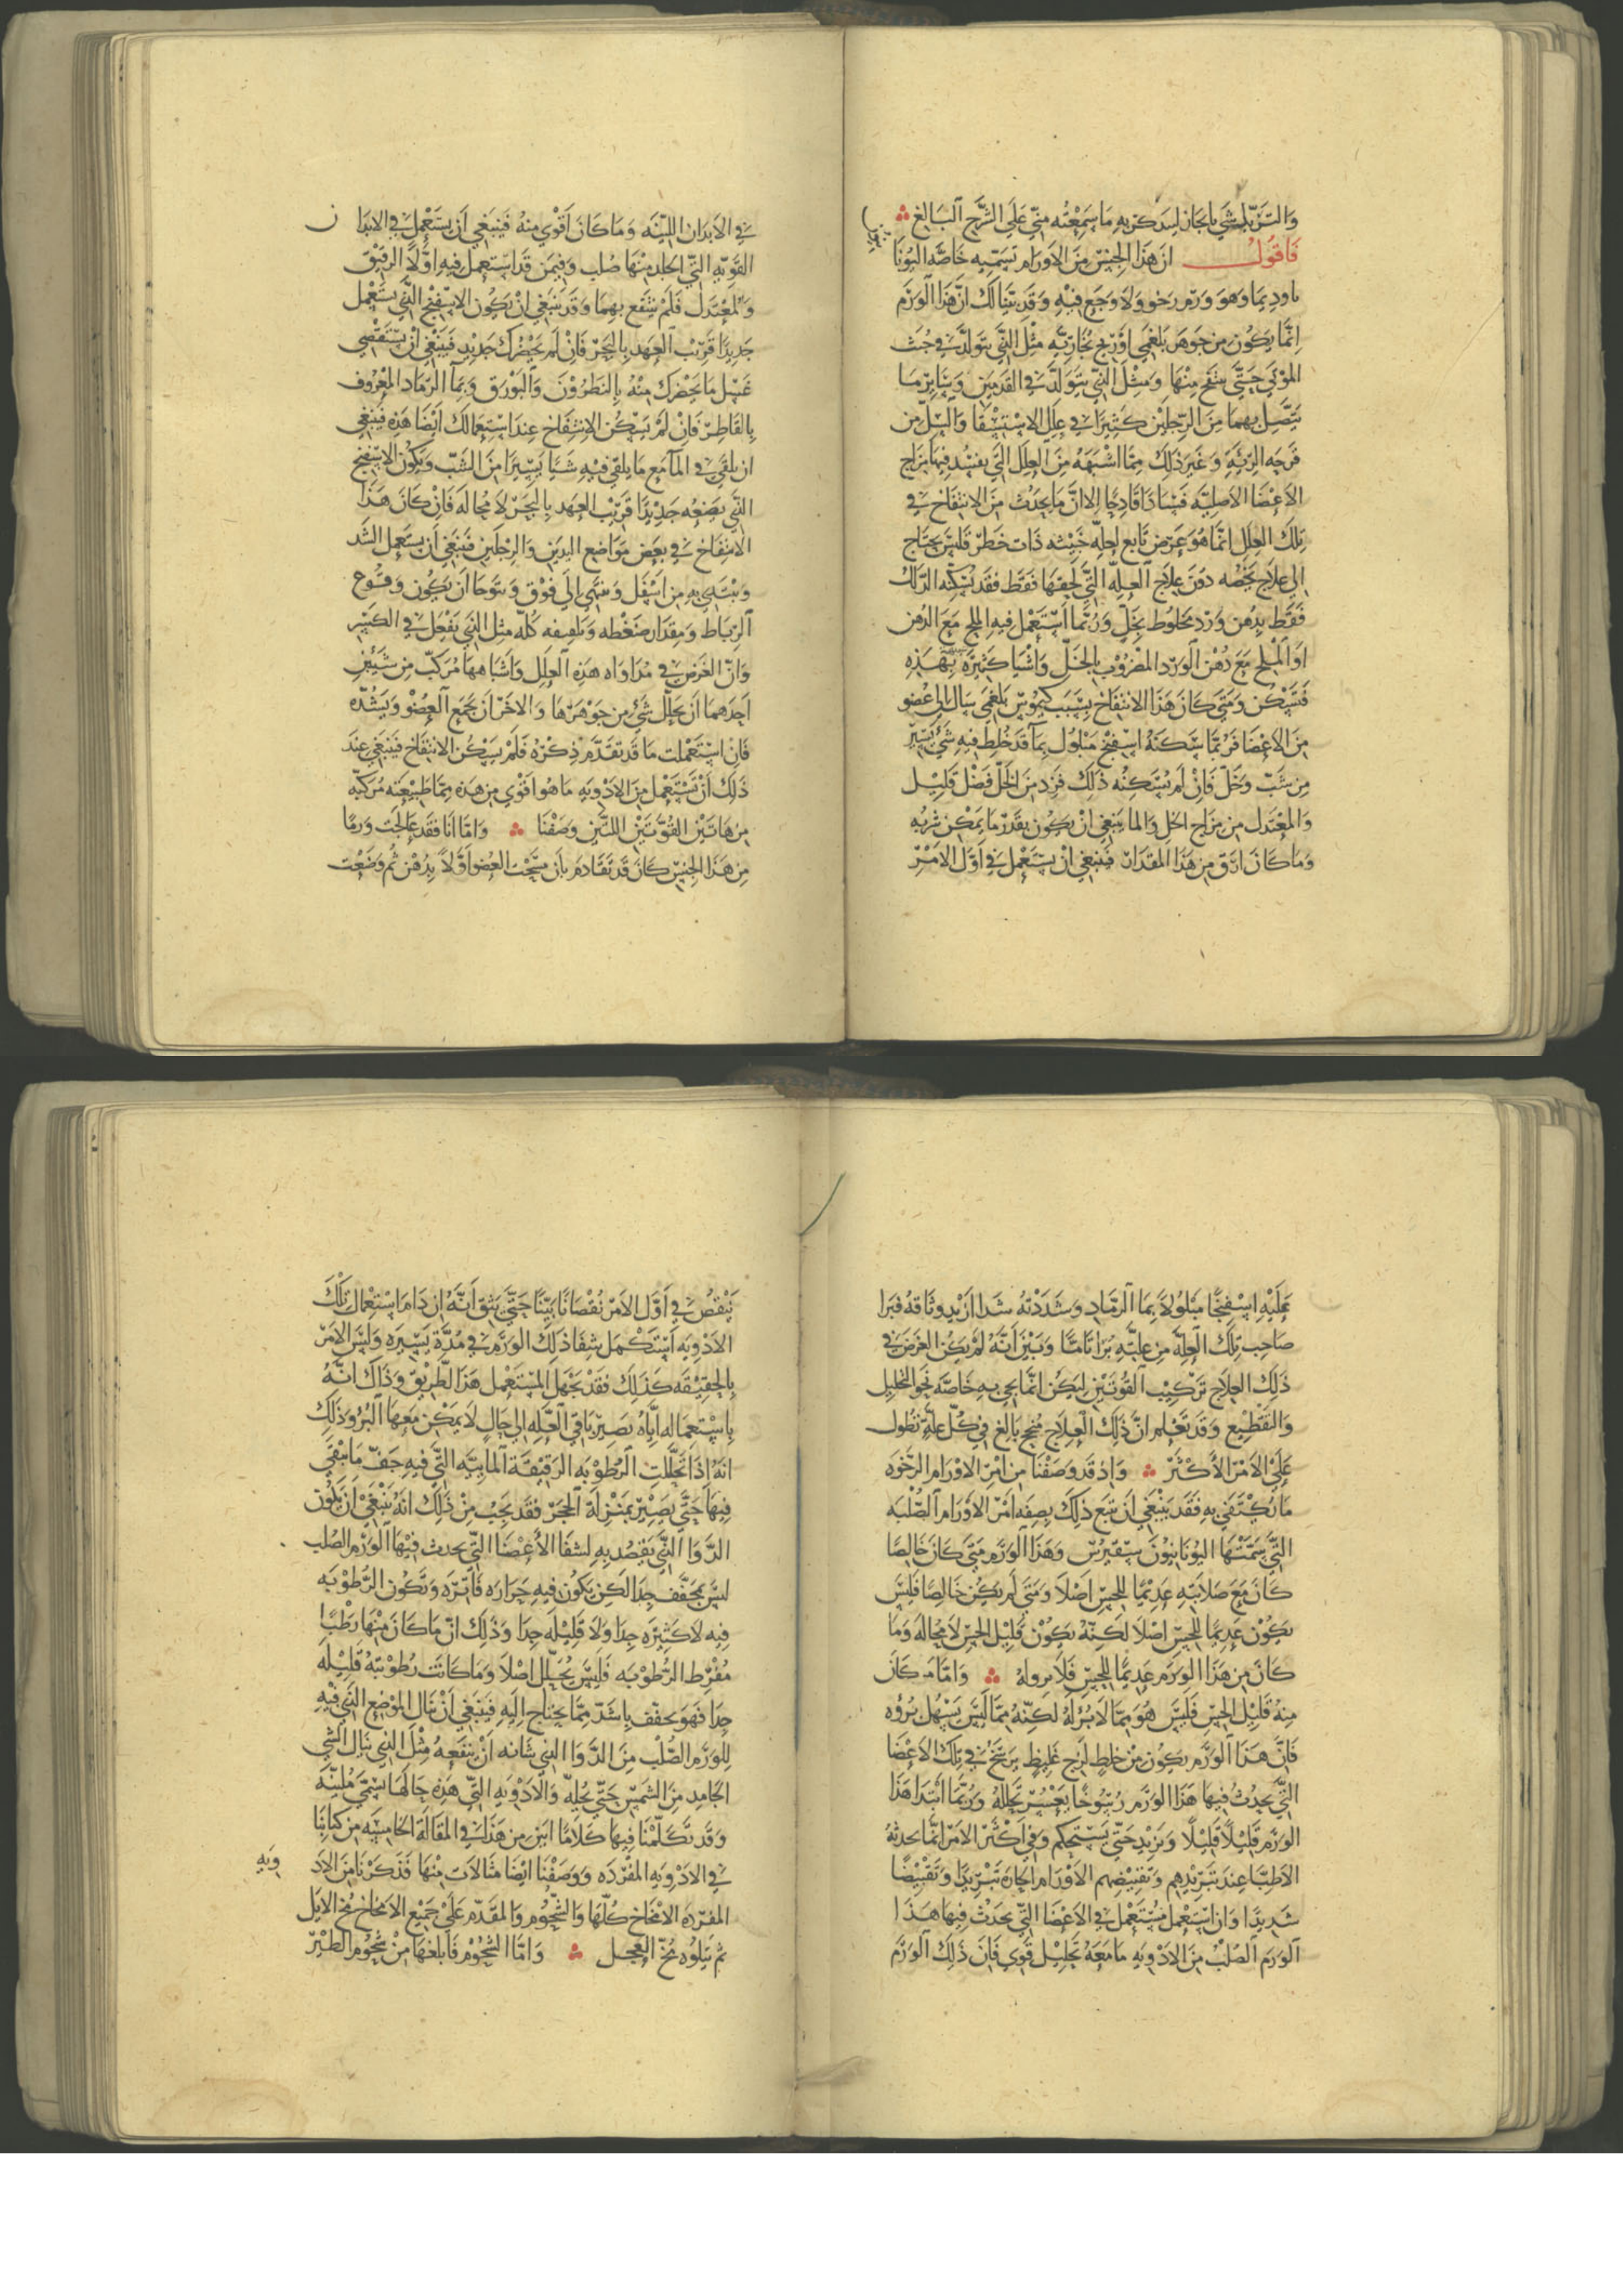 والتزيد شي بايجاز ليتذكر به ما سمعته مني على الشرح البالغ
فاقول ان هذا الجنس من الاورام تسميه خاصة اليونا
باوديما وهو ورم رخو ولا وجع فيه وقد بينا لك ان هذا الورم
انما يكون من جوهر بلغمي او ريح بخارية مثل التي تتولد في جثث
الموتى حتى ينتفخ منها ومثل التي تتولد في القدمين وسائر ما
يتصل بهما من الرجلين كثيرا في علل الاستسقا والسل من
قرحه الرئة وغير ذلك مما اشبهه من العلل التي يفسد فيها مزاج
الاعضا الاصلية فسادا قادحا الا ان ما يحدث من الانتفاخ في
تلك العلل انما هو عرض تابع لعله خبيثه ذات خطر فليس يحتاج
الى علاج يخصه دون علاج العلة التي لحقها فقط فقد يسكنه الدلك
فقط بدهن ورد مخلوط بخل وربما استعمل فيه الملح مع الدهن
او الملح مع دهن الورد المضروب بالخل واشيا كثيرة شبيهة بهذه
فتسكن ومتى كان هذا الانتفاخ بسبب كيموس بلغمي سال الى عضو
من الاعضا فربما سكنه اسفنج مبلول بما قد خلط فيه شي يسير
من شب وخل فان لم يسكنه ذلك فزد من الخل فضل قليل
والمعتدل من مزاج الخل والما ينبغي ان يكون بقدر ما يمكن شربه
وما كان ارق من هذا المقدار فينبغي ان يستعمل في اول الامر
في الابدان اللينه وما كان اقوى منه فينبغي ان يستعمل في الابدا ن
القوية التي الجلد منها صلب وفيمن قد استعمل فيه اولا الرقيق
والمعتدل فلم ينتفع بهما وقد ينبغي ان يكون الاسفنج الذي يستعمل
جديدا قريب العهد بالبحر فان لم يحضرك جديد فينبغي ان يستقصى
غسل ما يحضرك منه بالنطرون والبورق وبما الرماد المعروف
بالقاطر فان لم يسكن الانتفاخ عند استعمالك ايضا هذه فينبغي
ان يلقى في الما مع ما يلقى فيه شيا يسيرا من الشب ويكون الاسفنج
الذي يضعه جديدا قريب العهد بالبحر لا محالة فان كان هذا
الانتفاخ في بعض مواضع اليدين والرجلين فينبغي ان يستعمل الشد
ويبتدي به من اسفل وينتهي الى فوق ويتوخا ان يكون وقوع
الرباط ومقدار ضغطه وتلفيفه كله مثل الذي يفعل في الكسر
وان الغرض في مداواه هذه العلل واشباهها مركب من شيئين
احدهما ان يحلل شي من جوهرها والاخر ان يجمع العضو ويشده
فان استعملت ما قد تقدم ذكره فلم يسكن الانتفاخ فينبغي عند
ذلك ان تستعمل من الادويه ما هو اقوى من هذه مما طبيعته مركبه
من هاتين القوتين اللتين وصفنا واما انا فقد عالجت ورما
من هذا الجنس كان قد تقادم بان مسحت العضو اولا بدهن ثم وضعت
عليه اسفنجا مبلولا بما الرماد وشددته شدا ازيد وثاقه فبرا
صاحب تلك العلة من علته برا تاما وبين انه لم يكن الغرض في
ذلك العلاج تركيب القوتين ليكن انما يحي به خاصه نحو التحليل
والتقطيع وقد تعلم ان ذلك العلاج منجح بالغ في كل علة تطول
على الامر الاكثر واذ قد وصفنا من امر الاورام الرخوه
ما يكتفي به فقد ينبغي ان نتبع ذلك بصفه امر الاورام الصلبه
التي يسميها اليونانيون سقيروس وهذا الورم متى كان خالصا
كان مع صلابته عديما للحس اصلا ومتى لم يكن خالصا فليس
يكون عديما للحس اصلا لكنه يكون قليل الحس لا محالة وما
كان من هذا الورم عديما للحس فلا برو له واما ما كان
منه قليل الحس فليس هو مما لا برء له لكنه مما ليس يسهل بروه
فان هذا الورم يكون من خلط لزج غليظ يرسخ في تلك الاعضا
التي يحدث فيها هذا الورم رسوخا يعسر تحلله وربما ابتدا هذا
الورم قليلا قليلا ويزيد حتى يستحكم وفي اكثر الامر انما يحدثه
الاطبا عند تبريدهم وتقبيضهم الاورام الحارة تبريدا وتقبيضا
شديدا وان استعمل مستعمل في الاعضا التي يحدث فيها هذا
الورم الصلب من الادويه ما معه تحليل قوي فان ذلك الورم
ينقص في اول الامر نقصانا بينا حتى يثق انه ان دام استعمال تلك
الادويه استكمل شفا ذلك الورم في مدة يسيره وليس الامر
بالحقيقه كذلك فقد يجهل المستعمل هذا الطريق وذاك انه
باستعماله اياه يصير باقي العله الى حال لا يمكن معها البرو وذلك
انه اذا تحللت الرطوبه الرقيقة المائيه التي فيه جف ما يبقى
فيها حتى يصير بمنزلة الحجر فقد يجب من ذلك انه ينبغي ان يكون
الدوا الذي يقصد به لشفا الاعضا التي يحدث فيها الورم الصلب
ليس بمجفف جدا لكن يكون فيه حراره فاتره وتكون الرطوبه
فيه لا كثيره جدا ولا قليله جدا وذلك ان ما كان منها رطبا
مفرط الرطوبه فليس يحلل اصلا وما كانت رطوبته قليله
جدا فهو يجفف باشد مما يحتاج اليه فينبغي ان ينال الموضع الذي فيه
الورم الصلب من الدوا الذي شانه ان ينفعه مثل الذي ينال الشي
الجامد من الشمس حتى يحله والادويه التي هذه حالها تسمى ملينه
وقد تكلمنا فيها كلاما ابين من هذا في المقالة الخامسه من كتابنا
في الادويه المفرده ووصفنا ايضا مثالات منها فذكرنا من الاد ويه
المفرده الامخاخ كلها والشحوم والمقدم على جميع الامخاخ مخ الايل
ثم يتلوه مخ العجل واما الشحوم فابلغها من شحوم الطير